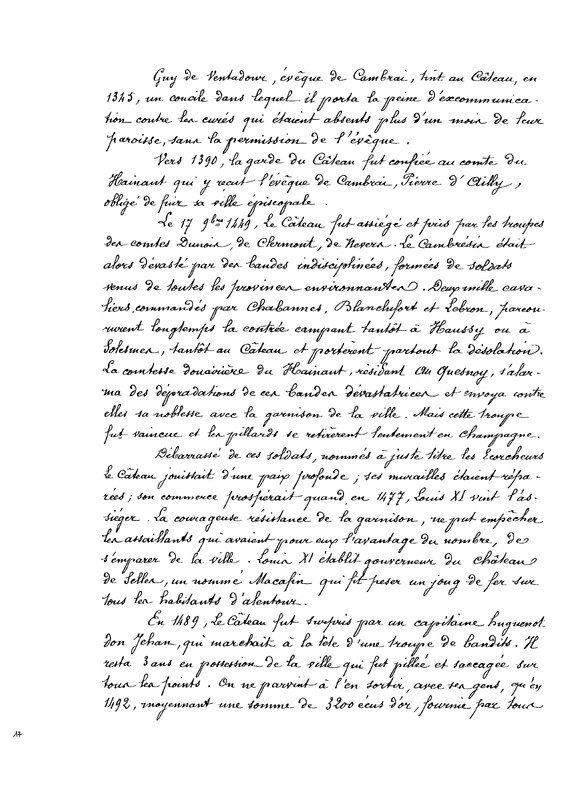 Guy de Ventadour, évêque de Cambrai, tint au Câteau, en
1345, un concile dans lequel il porta la peine d'excommunica-
tion contre les curés qui étaient absents plus d'un mois de leur
paroisse, sans la permission de l'évêque.
Vers 1390, la garde du Câteau fut confiée au comte du
Hainaut qui y reçut l'évêque de Cambrai, Pierre d'Ailly,
obligé de fuir sa ville épiscopale.
Le 17 9bre 1449, Le Câteau fut assiégé et pris par les troupes
des comtes Dunois, de Clermont, de Nevers. Le Cambrésis était
alors dévasté par des bandes indisciplinées, formées de soldats
venus de toutes les provinces environnantes. Deux mille cava-
liers, commandés par Chabannes, Blanchefort et Lebron, parcou-
rurent longtemps la contrée campant tantôt à Haussy ou à
Solesmes, tantôt au Câteau et portèrent partout la désolation.
La comtesse douairière du Hainaut, résidant au Quesnoy, s'alar-
ma des dépradations de ces bandes dévastatrices et envoya contre
elles sa noblesse avec la garnison de la ville. Mais cette troupe
fut vaincue et les pillards se retirèrent lentement en Champagne.
Débarrassé de ces soldats, nommés à juste titre les Ecorcheurs
Le Câteau jouissait d'une paix profonde ; ses murailles étaient répa-
rées ; son commerce prospérait quand, en 1477, Louis XI vint l'as-
siéger. La courageuse résistance de la garnison, ne put empêcher
les assaillants qui avaient pour eux l'avantage du nombre, de
s'emparer de la ville. Louis XI établit gouverneur du château
de Selles, un nommé Macafin qui fit peser un joug de fer sur
tous les habitants d'alentour.
En 1489, Le Câteau fut surpris par un capitaine huguenot
don Jehan, qui marchait à la tête d'une troupe de bandits. Il
resta 3 ans en possession de la ville qui fut pillée et saccagée sur
tous les points. On ne parvint à l'en sortir, avec ses gens, qu'en
1492, moyennant une somme de 3200 écus d'or, fournie par tous
17